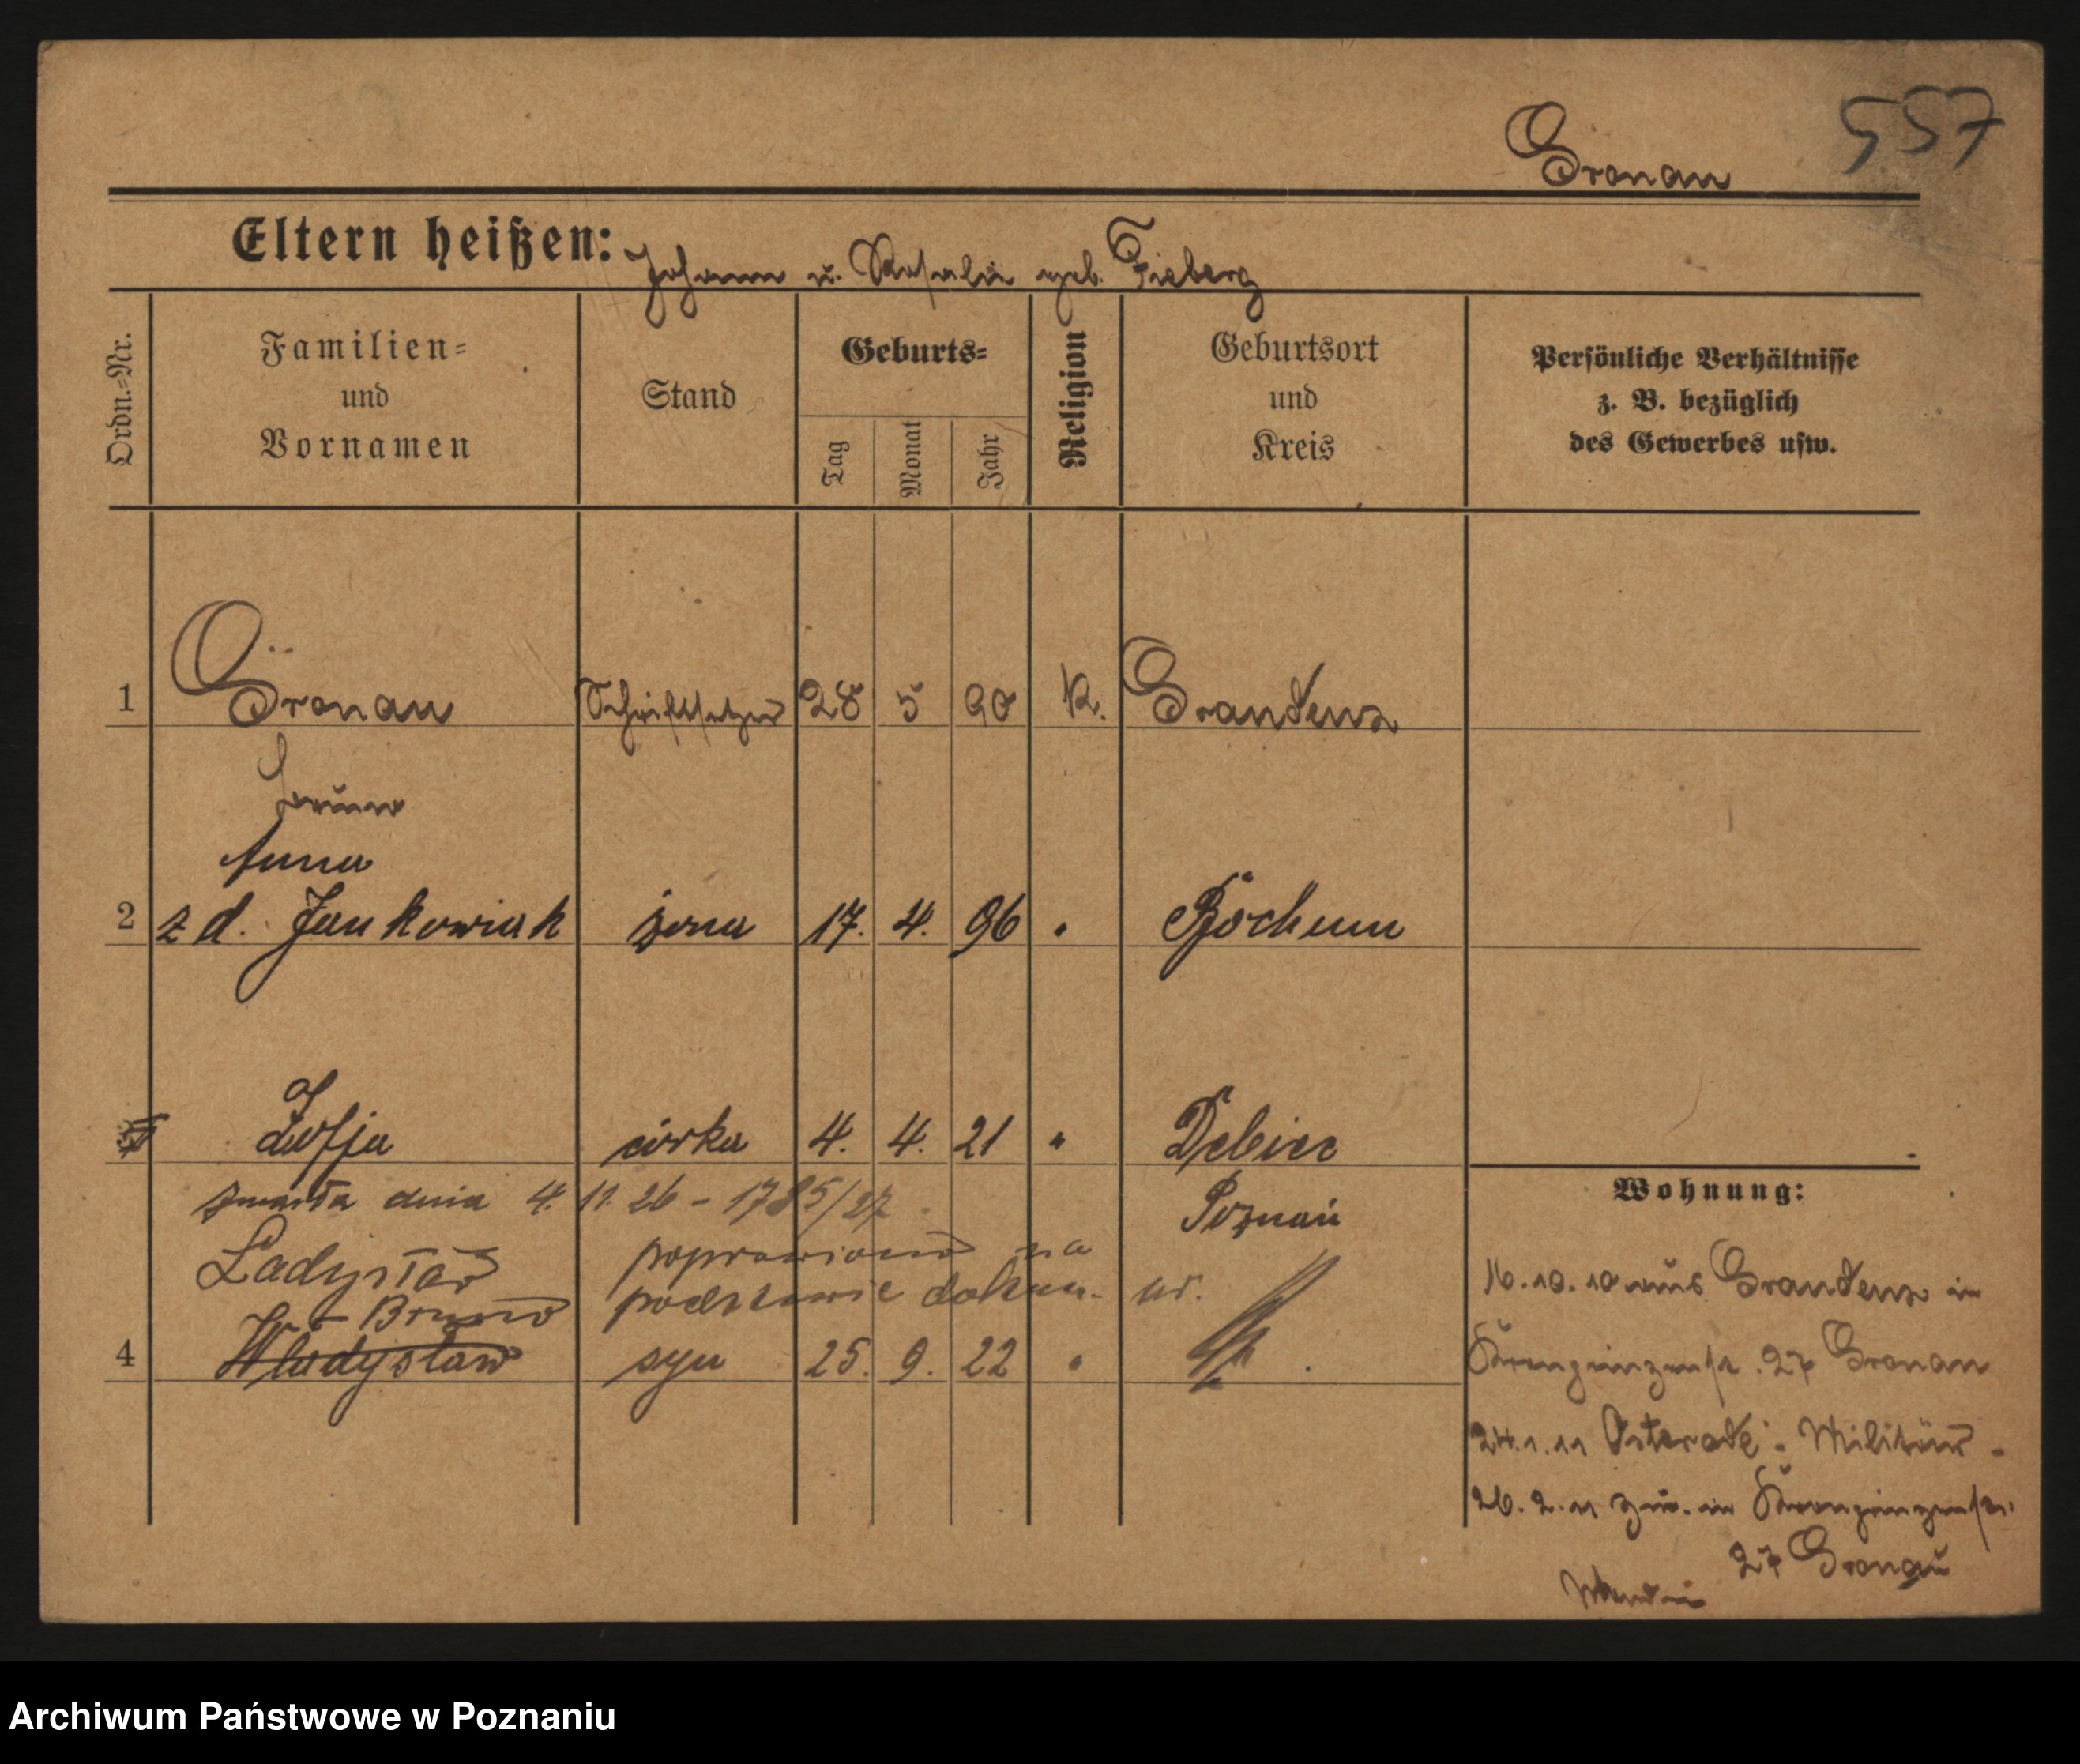 557
Gronau
Eltern heißen: Johann u. Rosalie geb. Fieberg
Ordn.-Nr.
Familien-
und
Vornamen
Stand
Geburts-
Tag
Monat
Jahr
Religion
Geburtsort
und
Kreis
Persönliche Verhältnisse
z. B. bezüglich
des Gewerbes usw.
1 Gronau Schriftsetzer 28 5 90 K. Graudenz
Bruno
Anna
2 z d. Jankowiak żona 17. 4. 96 " Bochum
Zofja córka 4. 4. 21 " Dębiec
zmarła dnia 4. 11. 26 - 1785/27 Poznań
Ladysław poprawiono na
- Bruno podstawie dokum. ur.
4 Władysław syn 25. 9. 22 "
Wohnung:
16.10.10 aus Graudenz in
Kronprinzenstr. 27 Gronau
24.1.11 Osterode : Militär -
26.2.11 zur. in Kronprinzenstr.
27 Gronau
Archiwum Państwowe w Poznaniu